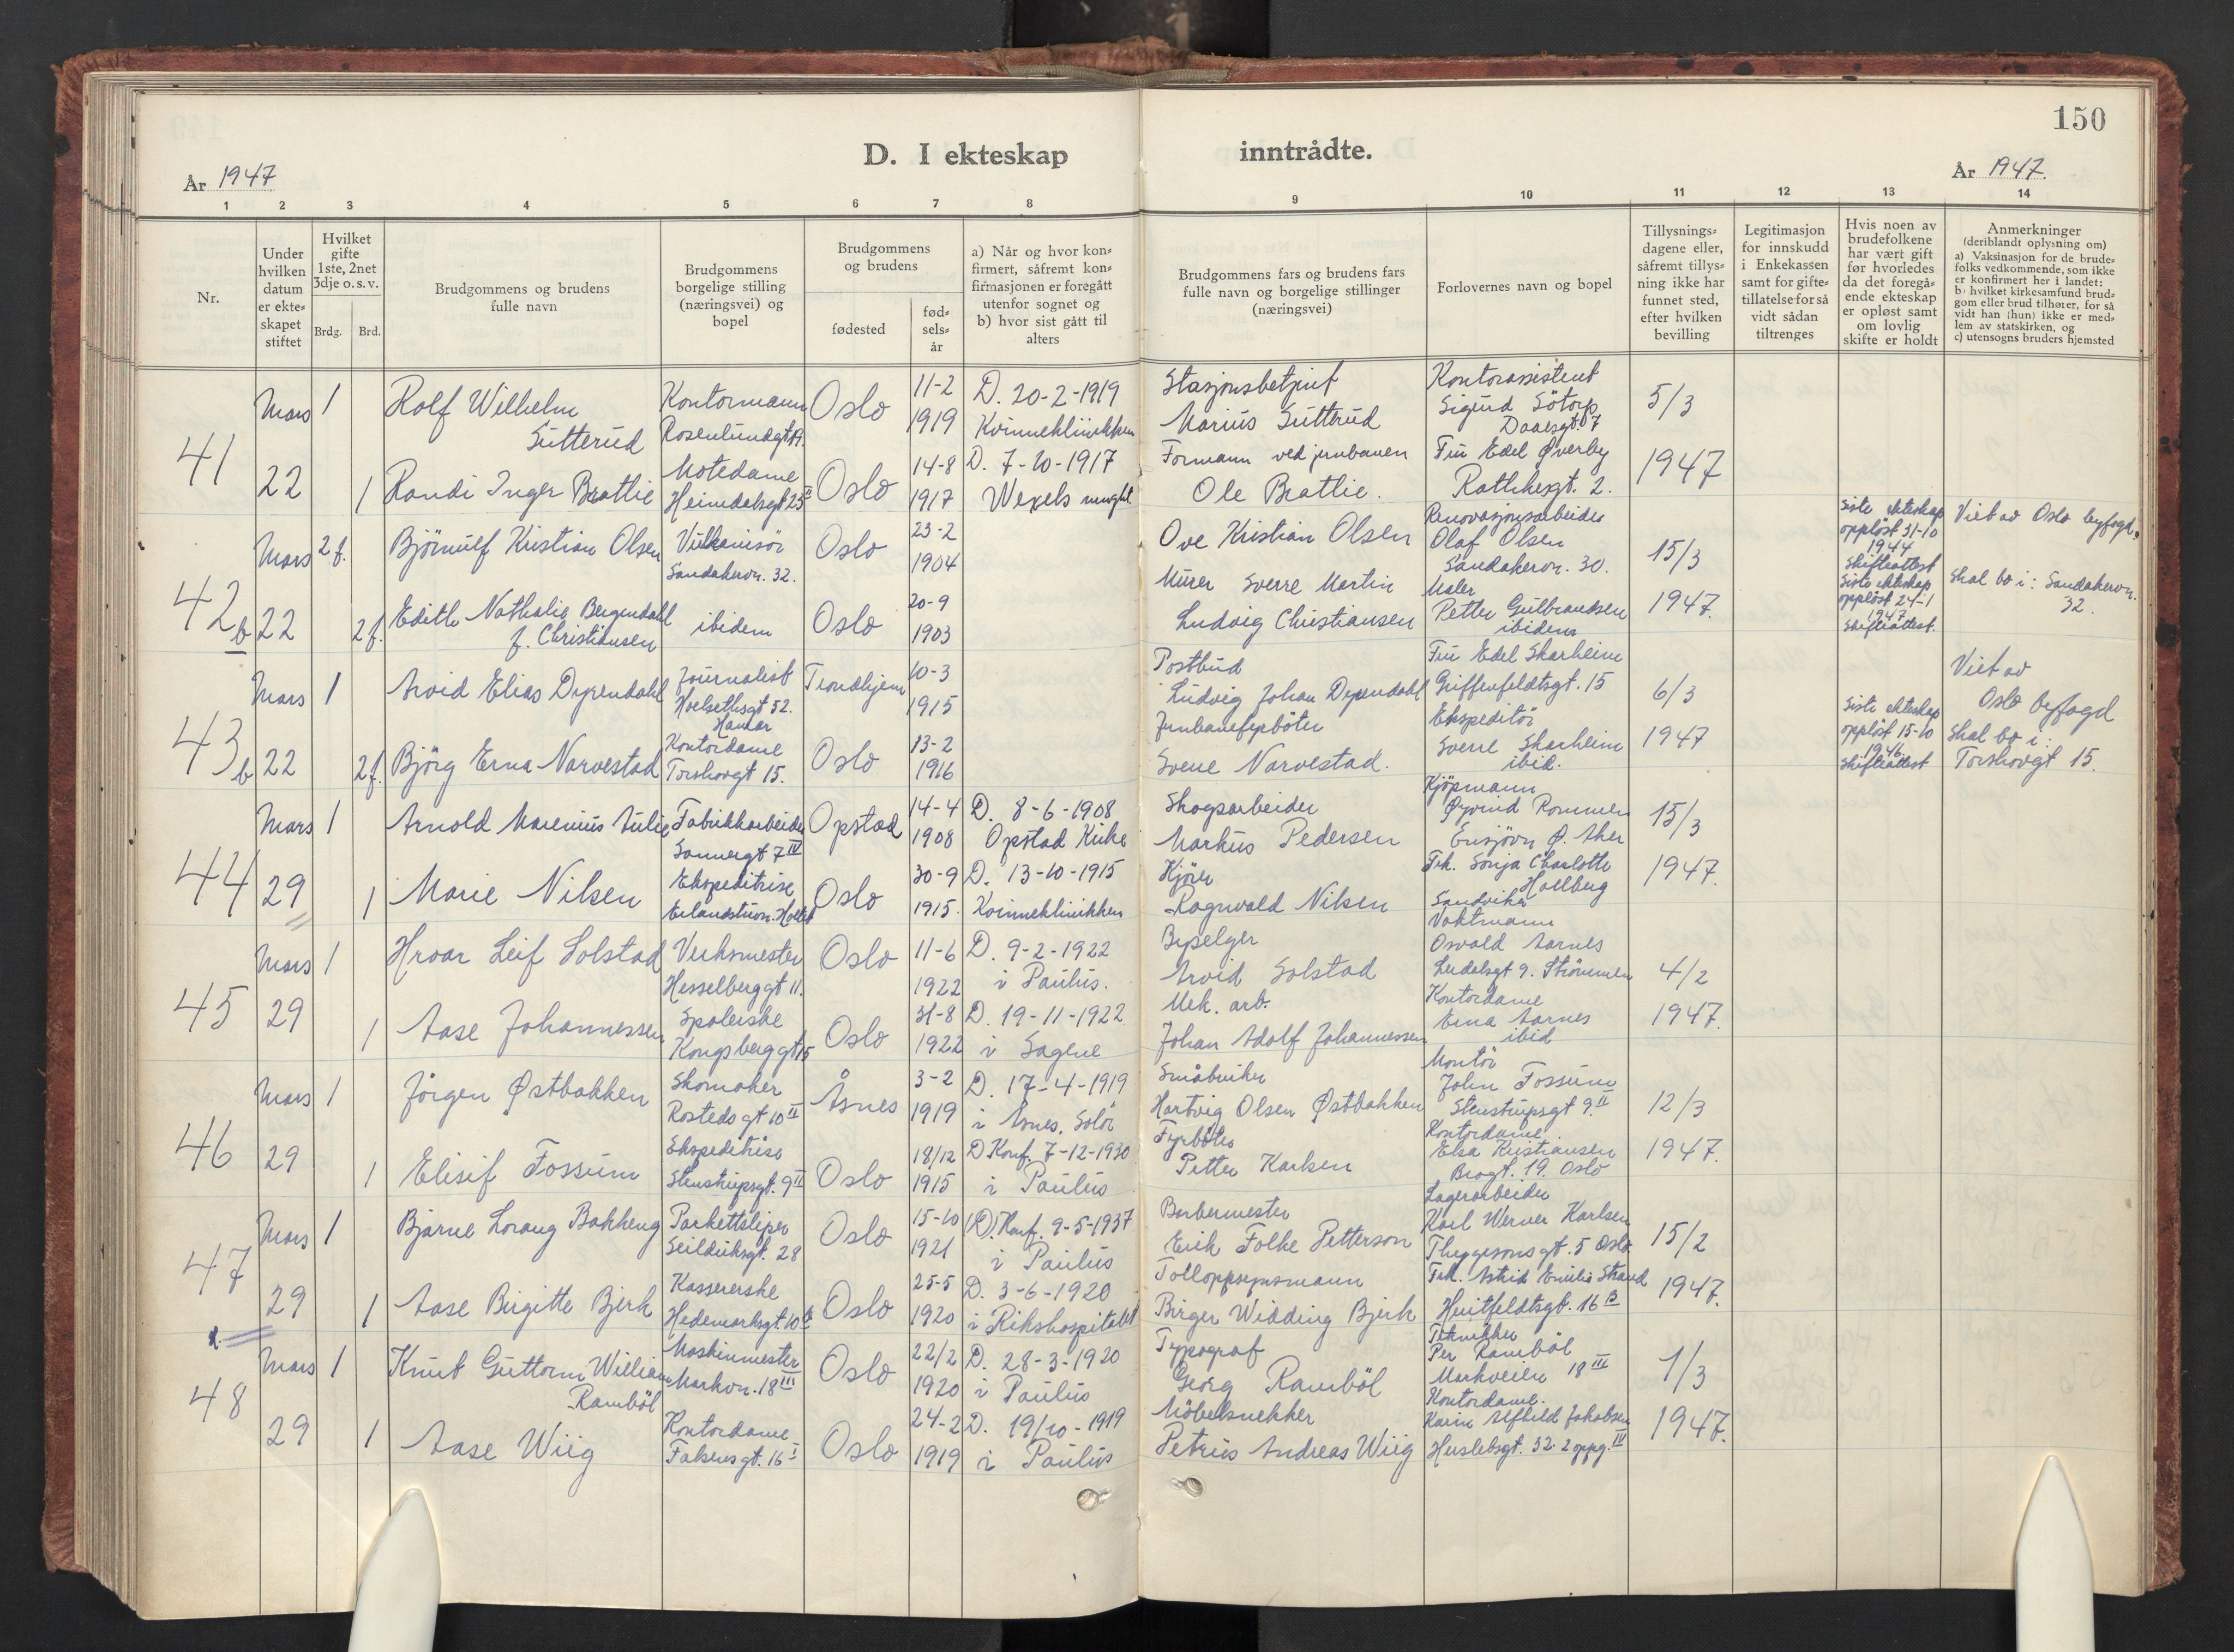 150
D. I ekteskap inntrådte.
År 1947
År 1947.
1 2 3 4 5 6 7 8 9 10 11 12 13 14
Nr.
Under hvilken datum er ekte= skapet stiftet
Hvilket gifte 1ste, 2net 3dje o. s. v.
Brdg. Brd.
Brudgommens og brudens fulle navn
Brudgommens borgelige stilling (næringsvei) og bopel
Brudgommens og brudens
fødested
fød= sels= år
a) Når og hvor kon= firmert, såfremt kon= firmasjonen er foregått utenfor sognet og b) hvor sist gått til alters
Brudgommens fars og brudens fars fulle navn og borgelige stillinger (næringsvei)
Forlovernes navn og bopel
Tillysnings= dagene eller, såfremt tillys= ning ikke har funnet sted, efter hvilken bevilling
Legitimasjon for innskudd i Enkekassen samt for gifte= tillatelse for så vidt sådan tiltrenges
Hvis noen av brudefolkene har vært gift før hvorledes da det foregå= ende ekteskap er opløst samt om lovlig skifte er holdt
Anmerkninger (deriblandt oplysning om) a) Vaksinasjon for de brude= folks vedkommende, som ikke er konfirmert her i landet: b) hvilket kirkesamfund brud= gom eller brud tilhører, for så vidt han (hun) ikke er med= lem av statskirken, og c) utensogns bruders hjemsted
41
Mars 22
1
Rolf Wilhelm Sutterud
Kontormann Rosenlundgt 19.
Oslo
11-2 1919
D. 20-2-1919 Kvinneklinikken
Stasjonsbetjent Marius Sutterud
Kontorassistent Sigurd Sötorp Daasgt. 7
5/3 1947
1
Randi Inger Brattlie
Motedame Heimdalsgt 25 II
Oslo
14-8 1917
D. 7-10-1917 Wexels
Formann ved jernbanen Ole Brattlie.
Fru Edel Øverby Rathkesgt. 2.
42 b
Mars 22
2 f.
Björnulf Kristian Olsen
Vulkanisör Sandakervn. 32.
Oslo
23-2 1904
Ove Kristian Olsen
Renovasjonsarbeider Olaf Olsen Sandakervn. 30.
15/3 1947.
Siste ekteskap opplöst 31-10 1944 Skifteattest
Viet av Oslo byfogd.
2 f.
Edith Nathalie Bergendahl f. Christiansen
ibidem
Oslo
20-9 1903
Murer Sverre Martin Ludvig Christiansen
Maler Petter Gulbrandsen ibidem
Siste ekteskap opplöst 24-1 1947 Skifteattest.
Skal bo i: Sandakervn. 32.
43 b
Mars 22
1
Arvid Elias Dypendahl
Journalist Hoelsethsgt 52. Hamar
Trondhjem
10-3 1915
Postbud Ludvig Johan Dypendahl
Fru Edel Skarheim Griffenfeldtsgt. 15
6/3 1947
Viet av Oslo byfogd
2 f.
Björg Erna Narvestad
Kontordame Torshovgt 15.
Oslo
13-2 1916
Jernbanefyrböter Svene Narvestad.
Ekspeditör Sverre Skarheim ibid.
Siste ekteskap opplöst 15-10 1946. Skifteattest
Skal bo i: Torshovgt 15.
44
Mars 29
1
Arnold Marenius Aulie
Fabrikkarbeider Sannergt 7 IV
Opstad
14-4 1908
D. 8-6-1908 Opstad Kirke
Skogsarbeider Markus Pedersen
Kjöpmann Øyvind Rommen Ensjövn Ø. Aker
15/3 1947.
1
Marie Nilsen
Ekspeditrise
Oslo
30-9 1915.
D. 13-10-1915 Kvinneklinikken
Kjörer Ragnvald Nilsen
Frk. Sonja Charlotte Hallberg Sandvika
45
Mars 29
1
Hroar Leif Solstad
Verksmester Hesselberggt 11.
Oslo
11-6 1922
D. 9-2-1922 i Paulus.
Bypelger Arvid Solstad
Vaktmann Osvald Aarnes Lerdalsgt 9. Strömmen
4/2 1947.
1
Aase Johannessen
Spolerske Kongsberggt 15
Oslo
31-8 1922
D. 19-11-1922 i Sagene
Mek. arb. Johan Adolf Johannessen
Kontordame Erna Aarnes ibid
46
Mars 29
1
Jörgen Østbakken
Skomaker Rosteds gt 10 II
Åsnes
3-2 1919
D. 17-4-1919 i Åsnes, Solör
Småbruker Hartvig Olsen Østbakken
Montör John Fossum Stenstrupsgt 9. II
12/3 1947.
1
Elisif Fossum
Ekspeditrise Stenstrupsgt. 9 II
Oslo
18/12 1915
D Konf. 7-12-1930 i Paulus
Fyrböter Petter Karlsen
Kontordame. Elsa Kristiansen Brogt. 19. Oslo
47
Mars 29
1
Bjarne Lorang Bakkeng
Parkettsliper Seilduksgt. 28
Oslo
15-10 1921
(D). Konf. 9-5-1937 i Paulus
Barbermester Erik Folke Petterson
Lagerarbeider Karl Werner Karlsen Thygesons gt. 5 Oslo.
15/2 1947.
1
Aase Birgitte Bjerk
Kassererske Hedemarksgt. 10
Oslo
25-5 1920
D. 3-6-1920 i Rikshospitalet
Tolloppsynsmann Birger Widding Bjerk
Frk. Astrid Emilie Strand Huitfeldtsgt. 16 B
48
Mars 29
1
Knut Guttorm William Ramböl
Maskinmester Markvn. 18 III
Oslo
22/2 1920
D. 28-3-1920 i Paulus
Typograf Georg Ramböl
Tekniker Per Ramböl Markveien 18 III
1/3 1947.
1
Aase Wiig
Kontordame Falsens gt. 16 I
Oslo
24-2 1919
D. 19/10-1919 i Paulus
Möbelsnekker Petrus Andreas Wiig
Kontordame. Karin Alfhild Jakobsen Herslebsgt. 32. 2 oppg. IV